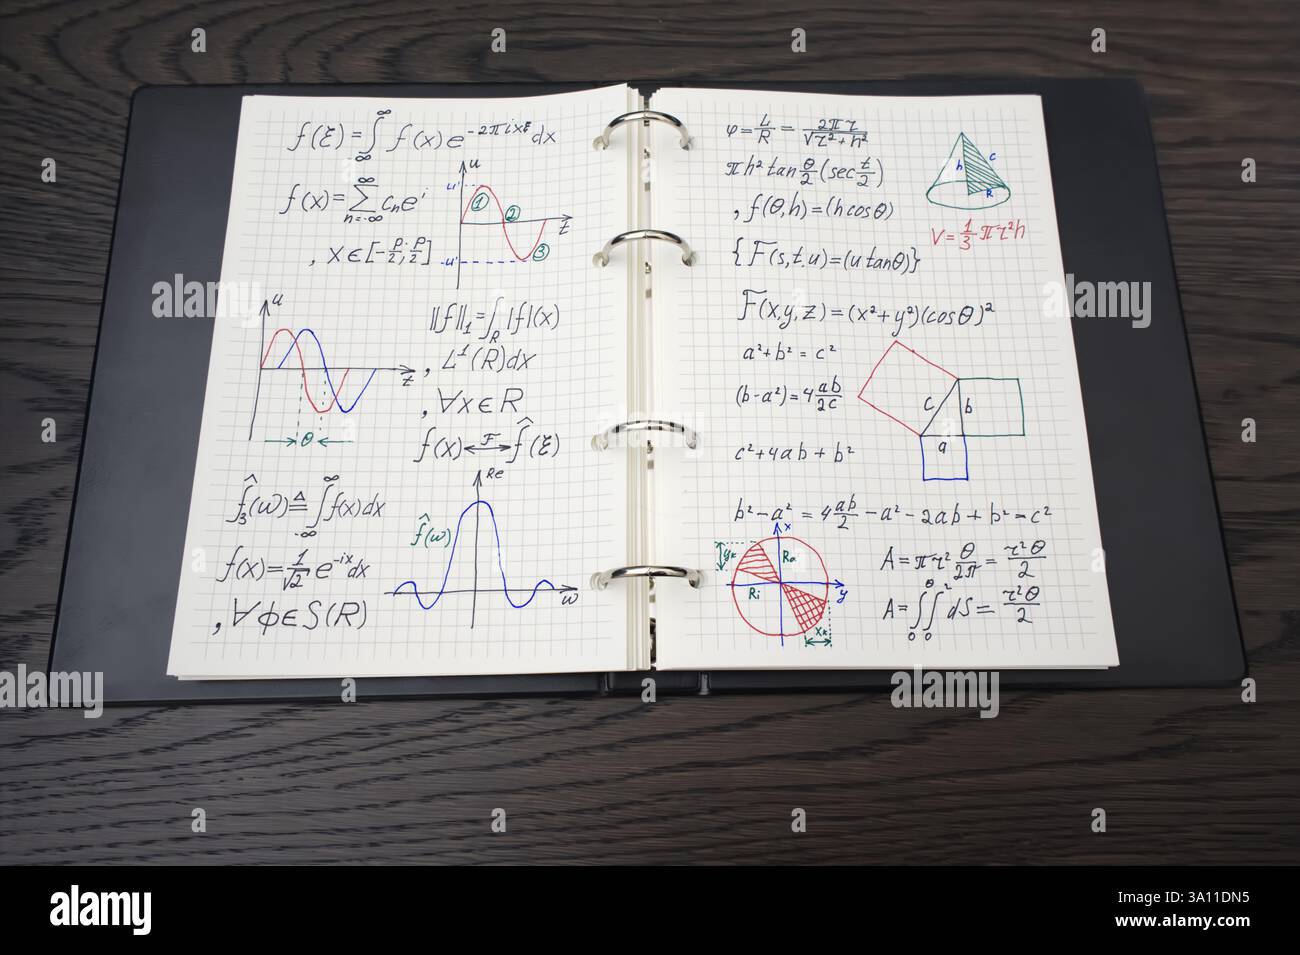 f(ξ) = ∫_∞^∞ f(x) e^{-2πixξ} dx
u
u'
1
2
3
-u'
z
f(x) = ∑_{n=-∞}^{∞} c_n e^i
, x ∈ [-p/2; p/2]
u
z
θ
||f||_1 = ∫_R |f|(x)
, L^1(R)dx
, ∀x ∈ R
f(x) ⟷^F f̂(ξ)
f̂_3(ω) ≜ ∫_{-∞}^{∞} f(x)dx
f(x) = 1/√2 e^{-ix} dx
, ∀ϕ ∈ S(R)
Re
f̂(ω)
ω
φ = L/R = 2πr/√(r²+h²)
πh² tan θ/2 (sec t/2)
, f(θ,h) = (h cosθ)
{F(s,t,u) = (u tanθ)}
h
c
R
V = 1/3 πr²h
F(x,y,z) = (x²+y²)(cosθ)²
a²+b² = c²
(b-a²) = 4 ab/2c
c²+4ab+b²
c
b
a
b²-a² = 4 ab/2 - a² - 2ab + b² - c²
x
y_k
R_a
R_i
y
x_k
A = πr² θ/2π = r²θ/2
A = ∫_0^θ ∫_0^2 dS = r²θ/2
a
alamy
Image ID: 3A11DN5
www.alamy.com